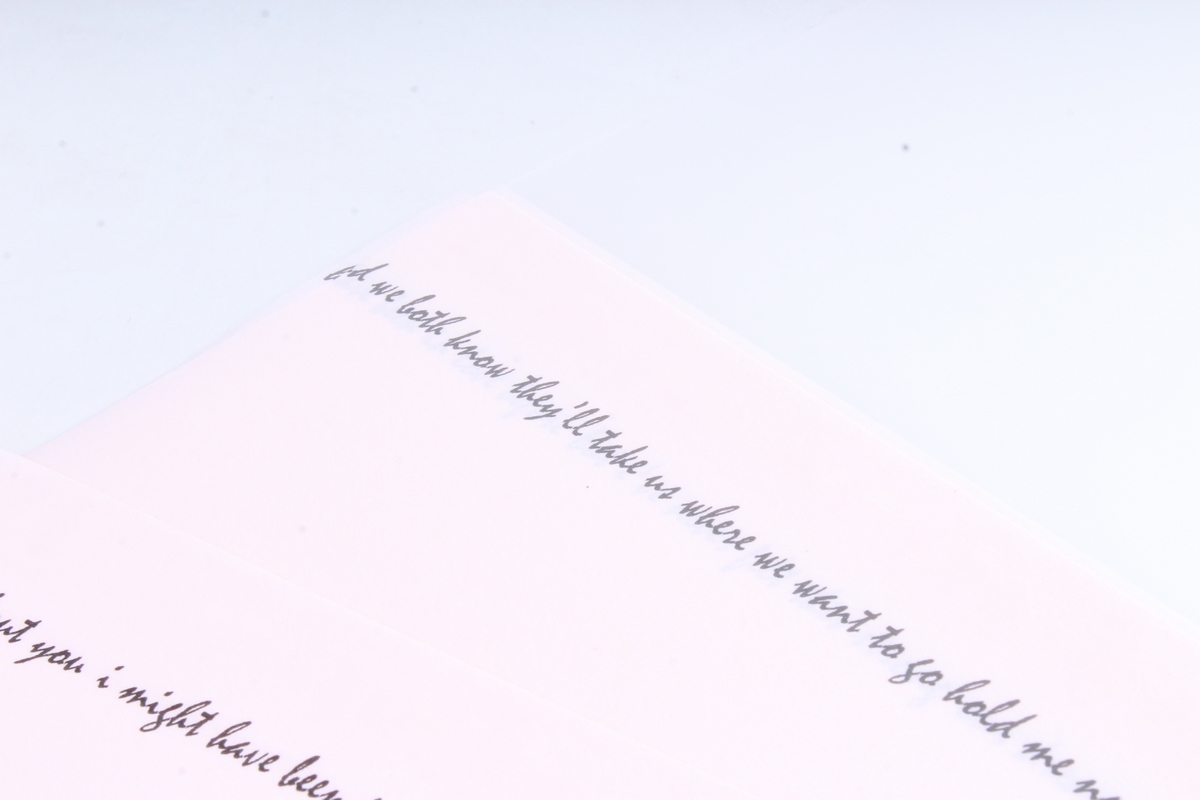 we both know they'll take us where we want to go hold me
you i might have been